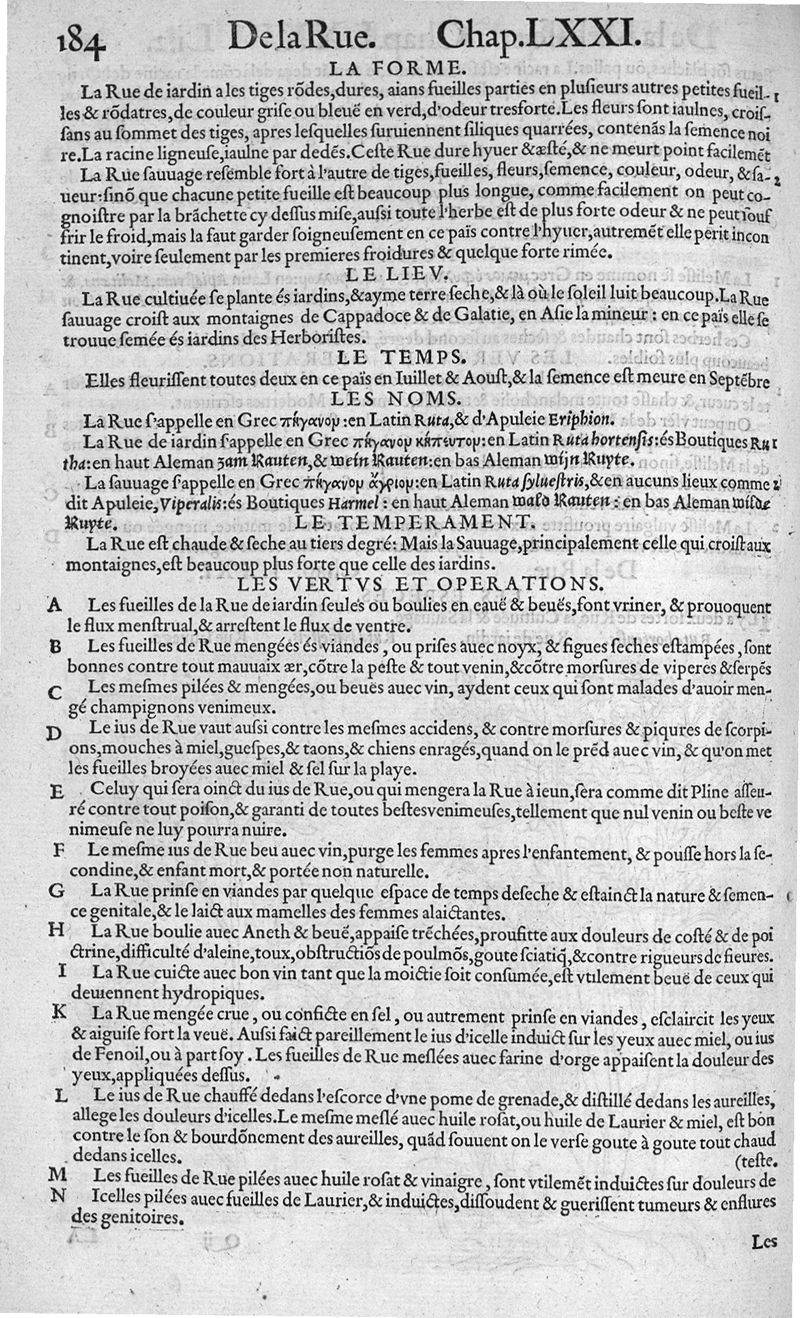 184 De la Rue. Chap. LXXI.
LA FORME.
La Rue de iardin a les tiges rõdes, dures, aians fueilles parties en pluſieurs autres petites fueil- 1
les & rõdatres, de couleur griſe ou bleuë en verd, d'odeur tresforte. Les fleurs ſont iaulnes, croiſ-
ſans au ſommet des tiges, apres leſquelles ſuruiennent ſiliques quarrées, contenãs la ſemence noi
re. La racine ligneuſe, iaulne par dedẽs. Ceſte Rue dure hyuer & æſté, & ne meurt point facilemẽt
La Rue ſauuage reſemble fort à l'autre de tiges, fueilles, fleurs, ſemence, couleur, odeur, & ſa- 2
ueur: ſinõ que chacune petite fueille eſt beaucoup plus longue, comme facilement on peut co-
gnoiſtre par la brãchette cy deſſus miſe, auſſi toute l'herbe eſt de plus forte odeur & ne peut ſouf
frir le froid, mais la faut garder ſoigneuſement en ce païs contre l'hyuer, autremẽt elle perit incon
tinent, voire ſeulement par les premieres froidures & quelque forte rimée.
LE LIEV.
La Rue cultiuée ſe plante és iardins, & ayme terre ſeche, & là où le ſoleil luit beaucoup. La Rue
ſauuage croiſt aux montaignes de Cappadoce & de Galatie, en Aſie la mineur : en ce païs elle ſe
trouue ſemée és iardins des Herboriſtes.
LE TEMPS.
Elles fleuriſſent toutes deux en ce païs en Iuillet & Aouſt, & la ſemence eſt meure en Septẽbre
LES NOMS.
La Rue ſ'appelle en Grec πήγανον : en Latin Ruta, & d'Apuleie Eriphion.
La Rue de iardin ſ'appelle en Grec πήγανον κηπευτον: en Latin Ruta hortenſis: és Boutiques Ru 1
tha: en haut Aleman zam Rauten, & wein Rauten: en bas Aleman wijn Ruyte.
La ſauuage ſ'appelle en Grec πήγανον ἄγριον: en Latin Ruta ſylueſtris, & en aucuns lieux comme 2
dit Apuleie, Viperalis: és Boutiques Harmel : en haut Aleman wald Rauten : en bas Aleman wilde
Ruyte. LE TEMPERAMENT.
La Rue eſt chaude & ſeche au tiers degré: Mais la Sauuage, principalement celle qui croiſt aux
montaignes, eſt beaucoup plus forte que celle des iardins.
LES VERTVS ET OPERATIONS.
A Les fueilles de la Rue de iardin ſeules ou boulies en eauë & beuës, font vriner, & prouoquent
le flux menſtrual, & arreſtent le flux de ventre.
B Les fueilles de Rue mengées és viandes, ou priſes auec noyx, & figues ſeches eſtampées, ſont
bonnes contre tout mauuaix ær, cõtre la peſte & tout venin, & cõtre morſures de viperes & ſerpẽs
C Les meſmes pilées & mengées, ou beuës auec vin, aydent ceux qui ſont malades d'auoir men-
gé champignons venimeux.
D Le ius de Rue vaut auſſi contre les meſmes accidens, & contre morſures & piqures de ſcorpi-
ons, mouches à miel, gueſpes, & taons, & chiens enragés, quand on le prẽd auec vin, & qu'on met
les fueilles broyées auec miel & ſel ſur la playe.
E Celuy qui ſera oinct du ius de Rue, ou qui mengera la Rue à ieun, ſera comme dit Pline aſſeu-
ré contre tout poiſon, & garanti de toutes beſtes venimeuſes, tellement que nul venin ou beſte ve
nimeuſe ne luy pourra nuire.
F Le meſme ius de Rue beu auec vin, purge les femmes apres l'enfantement, & pouſſe hors la ſe-
condine, & enfant mort, & portée non naturelle.
G La Rue prinſe en viandes par quelque eſpace de temps deſeche & eſtainct la nature & ſemen-
ce genitale, & le laict aux mamelles des femmes alaictantes.
H La Rue boulie auec Aneth & beuë, appaiſe trẽchées, proufitte aux douleurs de coſté & de poi
ctrine, difficulté d'aleine, toux, obſtructiõs de poulmõs, goute ſciatiq̃, & contre rigueurs de fieures.
I La Rue cuicte auec bon vin tant que la moictie ſoit conſumée, eſt vtilement beuë de ceux qui
deuiennent hydropiques.
K La Rue mengée crue, ou conficte en ſel, ou autrement prinſe en viandes, eſclaircit les yeux
& aiguiſe fort la veuë. Auſſi faict pareillement le ius d'icelle induict ſur les yeux auec miel, ou ius
de Fenoil, ou à part ſoy. Les fueilles de Rue meſlées auec farine d'orge appaiſent la douleur des
yeux, appliquées deſſus.
L Le ius de Rue chauffé dedans l'eſcorce d'vne pome de grenade, & diſtillé dedans les aureilles,
allege les douleurs d'icelles. Le meſme meſlé auec huile roſat, ou huile de Laurier & miel, eſt bon
contre le ſon & bourdõnement des aureilles, quãd ſouuent on le verſe goute à goute tout chaud
dedans icelles. (teſte.
M Les fueilles de Rue pilées auec huile roſat & vinaigre, ſont vtilemẽt induictes ſur douleurs de
N Icelles pilées auec fueilles de Laurier, & induictes, diſſoudent & gueriſſent tumeurs & enflures
des genitoires.
Les